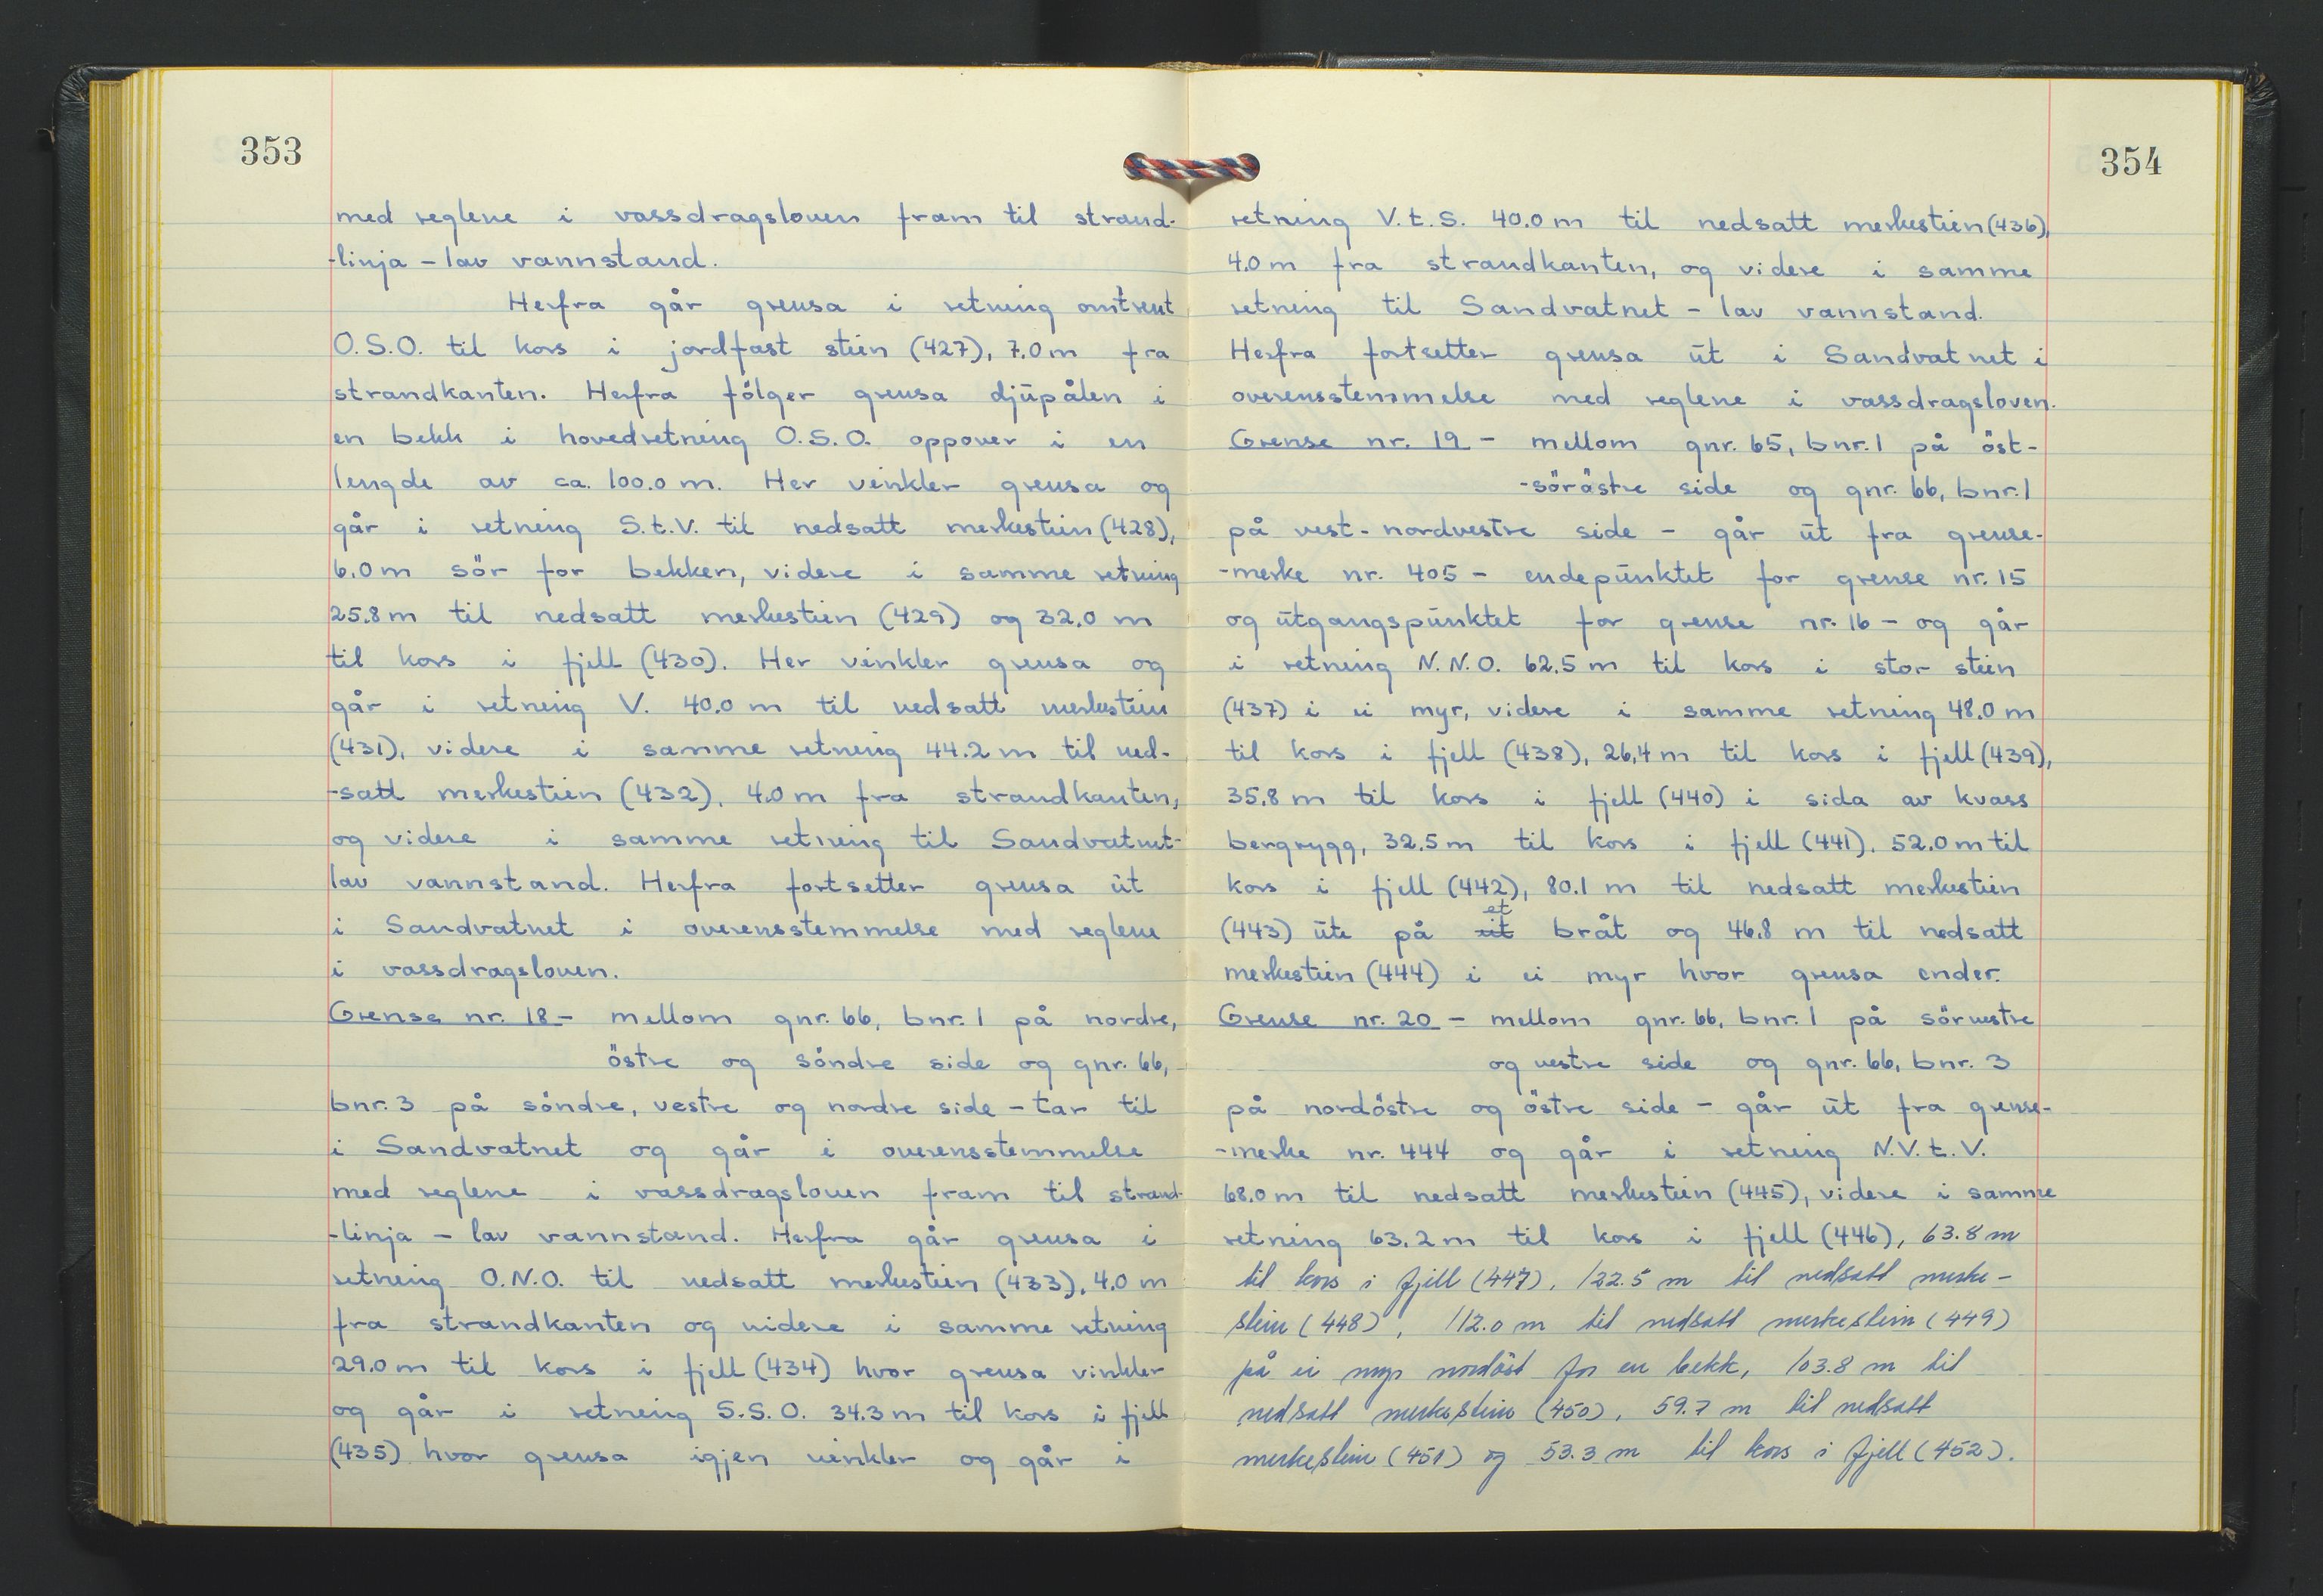 353
med reglene i vassdragsloven fram til strand-
-linja - lav vannstand.
Herfra går grensa i retning omtrent
O.S.O. til kors i jordfast stein (427), 7,0 m fra
strandkanten. Herfra fölger grensa djupålen i
en bekk i hovedretning O.S.O. oppover i en
lengde av ca. 100.0 m. Her vinkler grensa og
går i retning S.t.V. til nedsatt merkestein (428),
6.0 m sör for bekken, videre i samme retning
25.8 m til nedsatt merkestein (429) og 32.0 m
til kors i fjell (430). Her vinkler grensa og
går i retning V. 40.0 m til nedsatt merkestein
(431), videre i samme retning 44.2 m til ned-
-satt merkestein (432), 4.0 m fra strandkanten,
og videre i samme retning til Sandvatnet-
lav vannstand. Herfra fortsetter grensa ut
i Sandvatnet i overensstemmelse med reglene
i vassdragsloven.
Grense nr. 18 - mellom gnr. 66, bnr. 1 på nordre,
östre og söndre side og gnr. 66,
bnr. 3 på söndre, vestre og nordre side - tar til
i Sandvatnet og går i overensstemmelse
med reglene i vassdragsloven fram til strand-
-linja - lav vannstand. Herfra går grensa i
retning O.N.O. til nedsatt merkestein (433), 4.0 m
fra strandkanten og videre i samme retning
29.0 m til kors i fjell (434) hvor grensa vinkler
og går i retning S.S.O. 34.3 m til kors i fjell
(435) hvor grensa igjen vinkler og går i
354
retning V.t.S. 40.0 m til nedsatt merkestein (436),
4.0 m fra strandkanten, og videre i samme
retning til Sandvatnet - lav vannstand.
Herfra fortsetter grensa ut i Sandvatnet i
overensstemmelse med reglene i vassdragsloven.
Grense nr. 19 - mellom gnr. 65, bnr. 1 på öst-
-söröstre side og gnr. 66, bnr. 1
på vest-nordvestre side - går ut fra grense-
-merke nr. 405 - endepunktet for grense nr. 15
og utgangspunktet for grense nr. 16 - og går
i retning N.N.O. 62.5 m til kors i stor stein
(437) i ei myr, videre i samme retning 48.0 m
til kors i fjell (438), 26,4 m til kors i fjell (439),
35.8 m til kors i fjell (440) i sida av kvass
bergrygg, 32.5 m til kors i fjell (441), 52.0 m til
kors i fjell (442), 80.1 m til nedsatt merkestein
(443) ute på et bråt og 46.8 m til nedsatt
merkestein (444) i ei myr hvor grensa ender.
Grense nr. 20 - mellom gnr. 66, bnr. 1 på sörvestre
og vestre side og gnr. 66, bnr. 3
på nordöstre og östre side - går ut fra grense-
-merke nr. 444 og går i retning N.V.t.V.
68.0 m til nedsatt merkestein (445), videre i samme
retning 63.2 m til kors i fjell (446), 63.8 m
til kors i fjell (447), 122.5 m til nedsatt merke-
stein (448), 112.0 m til nedsatt merkestein (449)
på ei myr nordöst for en bekk, 103.8 m til
nedsatt merkestein (450), 59.7 m til nedsatt
merkestein (451) og 53.3 m til kors i fjell (452).